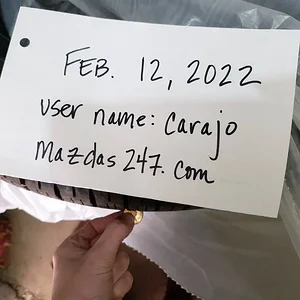 FEB. 12, 2022
user name: Carajo
Mazdas 247. com